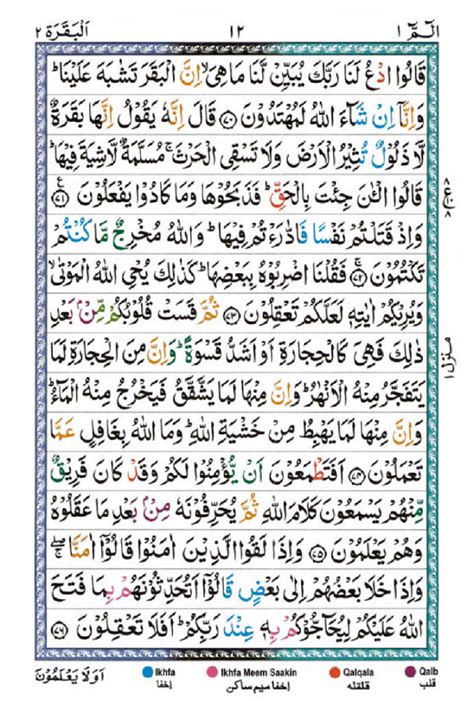 الٓمّٓ ١ ١٢ اَلْبَقَرَة ٢
قَالُوا ادْعُ لَنَا رَبَّكَ يُبَيِّنْ لَّنَا مَا هِىَ ۙ اِنَّ الْبَقَرَ تَشٰبَهَ عَلَيْنَا ؕ
وَاِنَّاۤ اِنْ شَآءَ اللّٰهُ لَمُهْتَدُوْنَ ﴿۷۰﴾ قَالَ اِنَّهٗ يَقُوْلُ اِنَّهَا بَقَرَةٌ
لَّا ذَلُوْلٌ تُثِيْرُ الْاَرْضَ وَلَا تَسْقِى الْحَرْثَ ۚ مُسَلَّمَةٌ لَّاشِيَةَ فِيْهَا ؕ
قَالُوا الْـٰٔنَ جِئْتَ بِالْحَقِّ ؕ فَذَبَحُوْهَا وَمَا كَادُوْا يَفْعَلُوْنَ ﴿۷۱﴾
وَاِذْ قَتَلْتُمْ نَفْسًا فَادّٰرَءْتُمْ فِيْهَا ؕ وَاللّٰهُ مُخْرِجٌ مَّا كُنْتُمْ
تَكْتُمُوْنَ ﴿۷۲﴾ فَقُلْنَا اضْرِبُوْهُ بِبَعْضِهَا ؕ كَذٰلِكَ يُحْىِ اللّٰهُ الْمَوْتٰى ۙ
وَيُرِيْكُمْ اٰيٰتِهٖ لَعَلَّكُمْ تَعْقِلُوْنَ ﴿۷۳﴾ ثُمَّ قَسَتْ قُلُوْبُكُمْ مِّنْۢ بَعْدِ
ذٰلِكَ فَهِىَ كَالْحِجَارَةِ اَوْ اَشَدُّ قَسْوَةً ؕ وَاِنَّ مِنَ الْحِجَارَةِ لَمَا
يَتَفَجَّرُ مِنْهُ الْاَنْهٰرُ ؕ وَاِنَّ مِنْهَا لَمَا يَشَّقَّقُ فَيَخْرُجُ مِنْهُ الْمَآءُ ؕ
وَاِنَّ مِنْهَا لَمَا يَهْبِطُ مِنْ خَشْيَةِ اللّٰهِ ؕ وَمَا اللّٰهُ بِغَافِلٍ عَمَّا
تَعْمَلُوْنَ ﴿۷۴﴾ اَفَتَطْمَعُوْنَ اَنْ يُّؤْمِنُوْا لَكُمْ وَقَدْ كَانَ فَرِيْقٌ
مِّنْهُمْ يَسْمَعُوْنَ كَلٰمَ اللّٰهِ ثُمَّ يُحَرِّفُوْنَهٗ مِنْۢ بَعْدِ مَا عَقَلُوْهُ
وَهُمْ يَعْلَمُوْنَ ﴿۷۵﴾ وَاِذَا لَقُوا الَّذِيْنَ اٰمَنُوْا قَالُوْاۤ اٰمَنَّا ۖۚ
وَاِذَا خَلَا بَعْضُهُمْ اِلٰى بَعْضٍ قَالُوْاۤ اَتُحَدِّثُوْنَهُمْ بِمَا فَتَحَ
اللّٰهُ عَلَيْكُمْ لِيُحَآجُّوْكُمْ بِهٖ عِنْدَ رَبِّكُمْ ؕ اَفَلَا تَعْقِلُوْنَ ﴿۷۶﴾
منزل ١
اَوَلَا يَعْلَمُوْنَ
Ikhfa Ikhfa Meem Saakin Qalqala Qalb
اخفا اخفا میم ساکن قلقلہ قلب